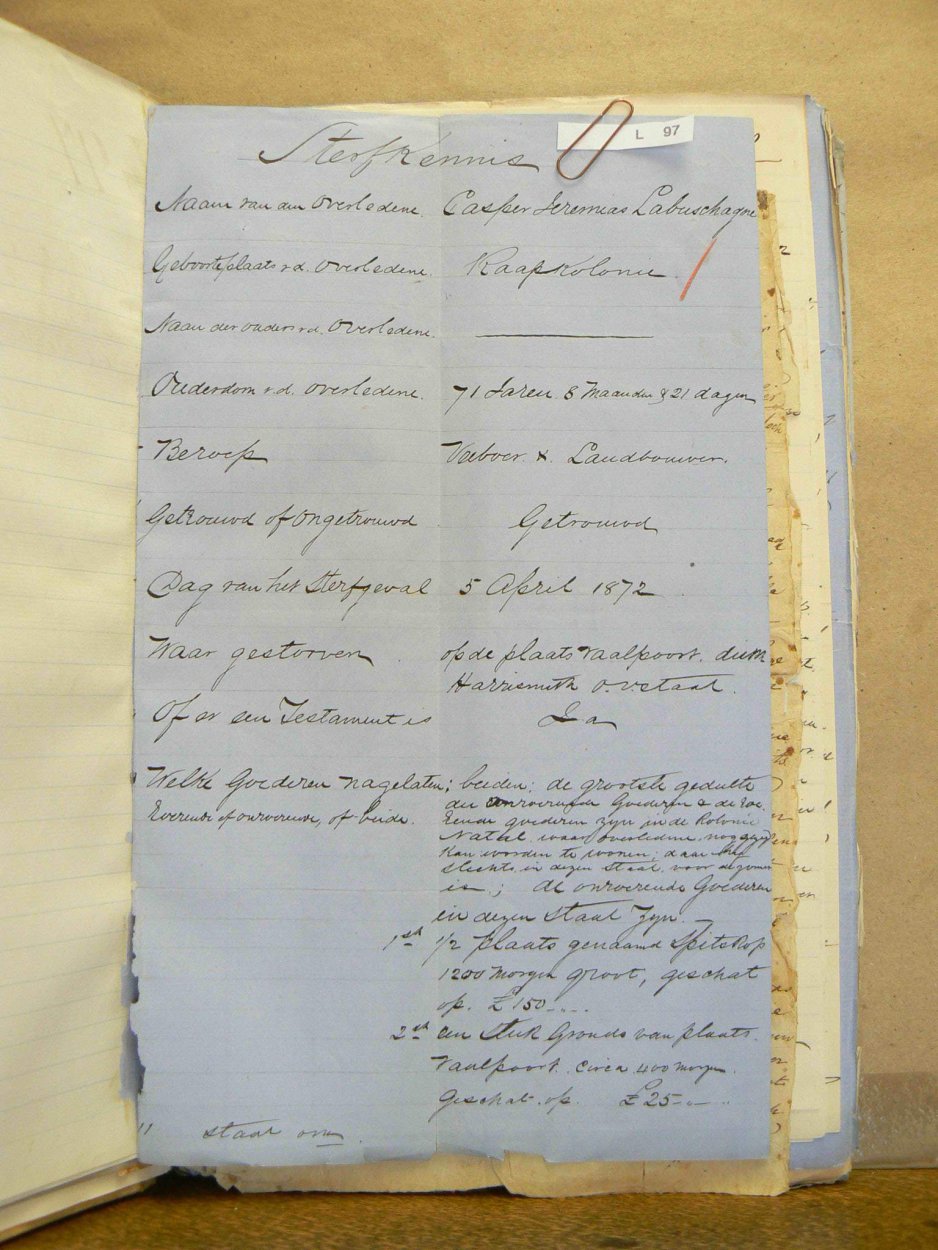 L 97
Sterfkennis
Naam van den Overledene. Casper Jeremias Labuschagne
Geboorteplaats v.d. Overledene. Kaapkolonie.
Naam der ouders v.d. Overledene.
Ouderdom v.d. overledene. 71 Jaren 8 Maanden & 21 dagen
Beroep Veeboer & Landbouwer.
Getrouwd of Ongetrouwd Getrouwd
Dag van het Sterfgeval 5 April 1872
Waar gestorven op de plaats Vaalpoort. distr
Harrismith O.v.staat.
Of er een Testament is Ja
Welke Goederen nagelaten; beiden; de grootste gedeelte
Roerende of onroerende, of beide. der onroerende Goederen & de Roe-
rende goederen zyn in de Kolonie
Natal waar overledene nog gezegd
kan worden te wonen; daar hy
slechts in dezen staat voor de zomer
is; de onroerende Goederen
in dezen staat Zyn.—
1st 1/2 plaats genaamd Spitskop
1200 Morgen groot, geschat
op. £150-....
2st een Stuk Gronds van plaats.
Vaalpoort. circa 400 morgen.
geschat. op. £25-.-
staat om